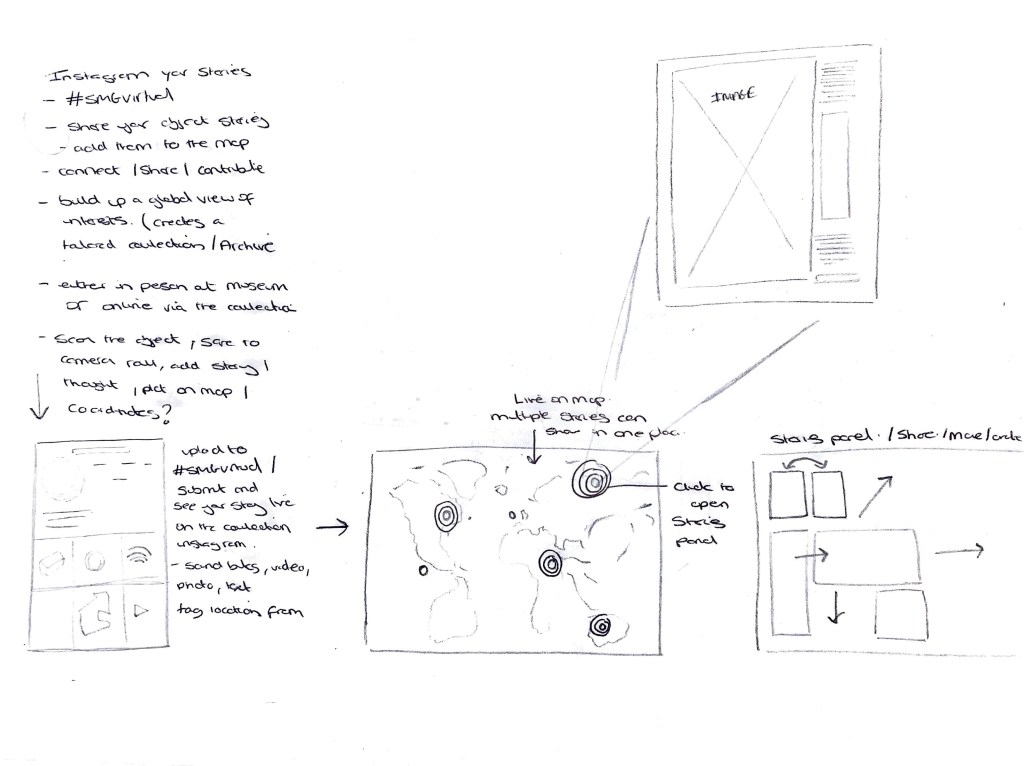 Instagram your stories
- #SMGvirtual
- share your object stories
- add them to the map
- connect / share / contribute
- build up a global view of
interests. (creates a
tailored collection / Archive
- either in person at museum
or online via the collection
- scan the object, save to
camera roll, add story /
thought, plot on map /
coordinates?
upload to
#SMGvirtual /
submit and
see your story live
on the collection
instagram.
- sound bites, video,
photo, text
tag location from
IMAGE
Live on map.
multiple stories can
show in one place.
Click to
open
stories
panel
stories panel. / share. / move /